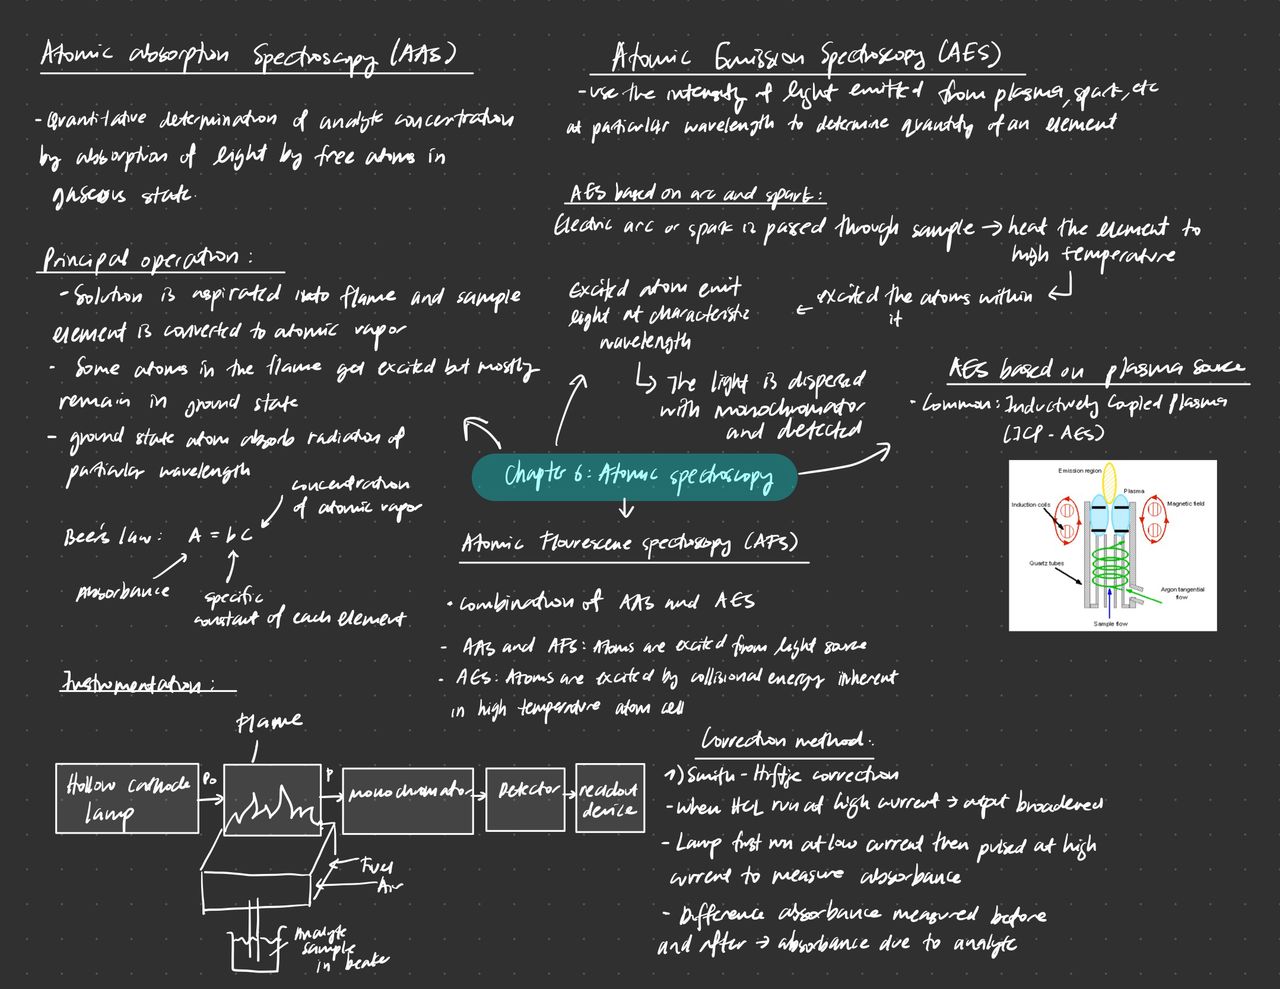 Atomic absorption Spectroscopy (AAS)
- Quantitative determination of analyte concentration
by absorption of light by free atoms in
gaseous state.
Principal operation:
- Solution is aspirated into flame and sample
element is converted to atomic vapor
- Some atoms in the flame get excited but mostly
remain in ground state
- ground state atom absorb radiation of
particular wavelength
concentration
of atomic vapor
Beer's law: A = bc
Absorbance
specific
constant of each element
Instrumentation:
Flame
Hollow cathode
lamp
Po
P
monochromator
Detector
readout
device
Fuel
Air
Analyte
sample
in beaker
Atomic Emission Spectroscopy (AES)
- use the intensity of light emitted from plasma, spark, etc
at particular wavelength to determine quantity of an element
AES based on arc and spark:
Electric arc or spark is passed through sample → heat the element to
high temperature
excited the atoms within
it
Excited atom emit
light at characteristic
wavelength
The light is dispersed
with monochromator
and detected
AES based on plasma source
- Common: Inductively Coupled Plasma
(ICP - AES)
Emission region
Plasma
Induction coils
Magnetic field
Quartz tubes
Argon tangential
flow
Sample flow
Chapter 6: Atomic spectroscopy
Atomic Flourescene spectroscopy (AFS)
- combination of AAS and AES
- AAS and AFS: Atoms are excited from light source
- AES: Atoms are excited by collisional energy inherent
in high temperature atom cell
Correction method:
1) Smith - Hiftje correction
- when HCL run at high current → output broadened
- Lamp first run at low current then pulsed at high
current to measure absorbance
- Difference absorbance measured before
and after → absorbance due to analyte